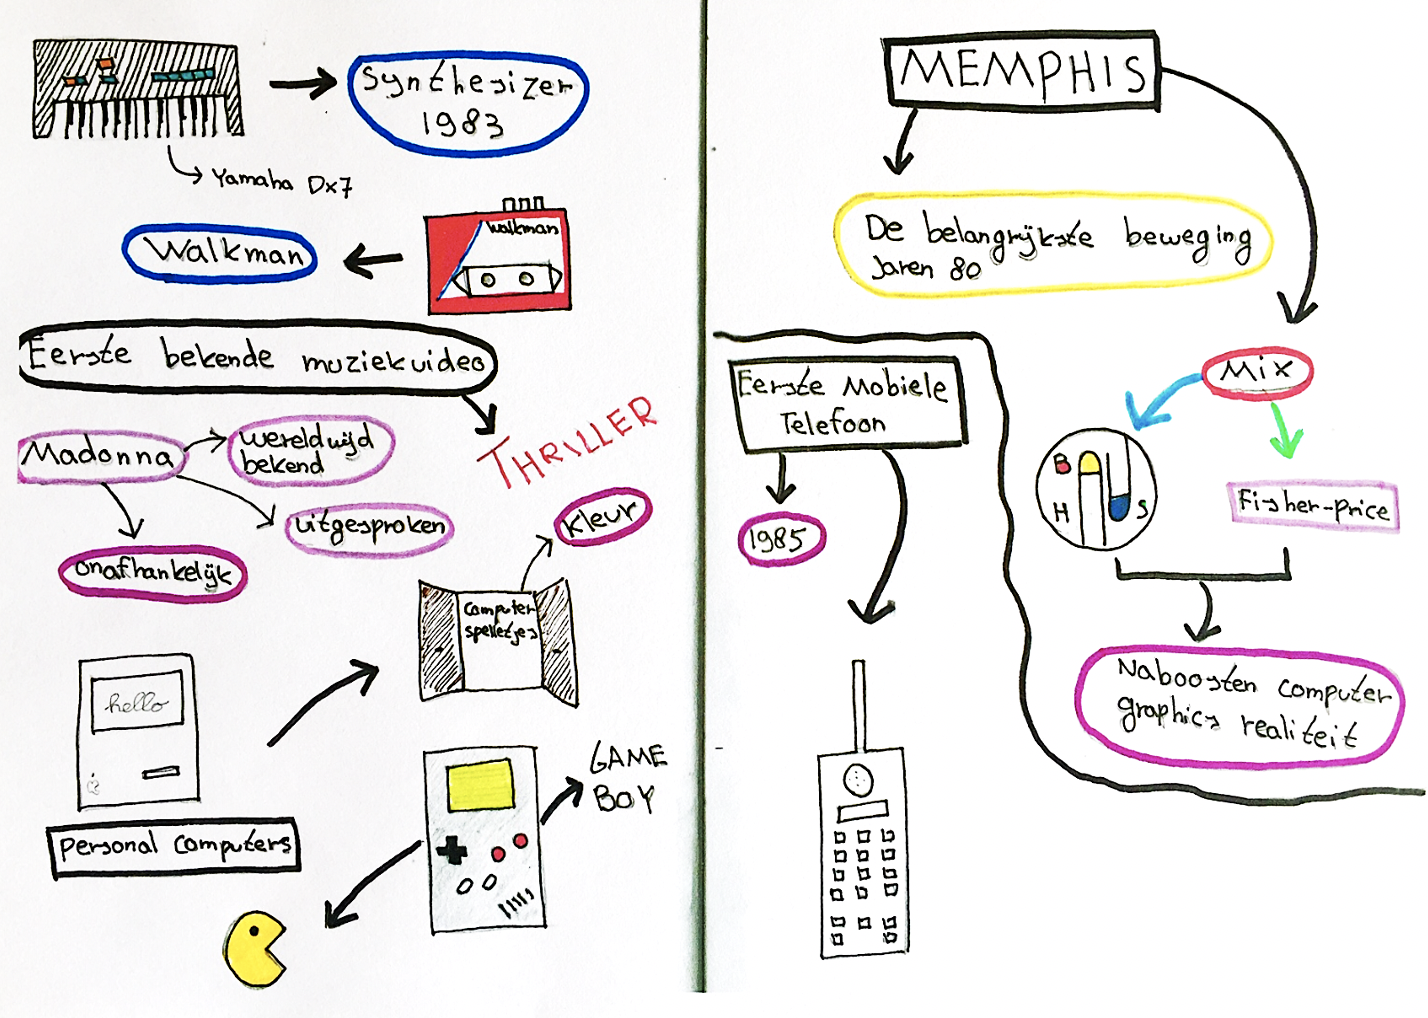 Synthesizer
1983
Yamaha Dx7
Walkman
Walkman
Eerste bekende muziekvideo
THRILLER
Madonna
wereldwijd
bekend
uitgesproken
onafhankelijk
kleur
Computer
spelletjes
hello
personal computers
GAME
BOY
MEMPHIS
De belangrijkste beweging
Jaren 80
Mix
B
H
S
Fisher-price
Naboosten computer
graphics realiteit
Eerste Mobiele
Telefoon
1985